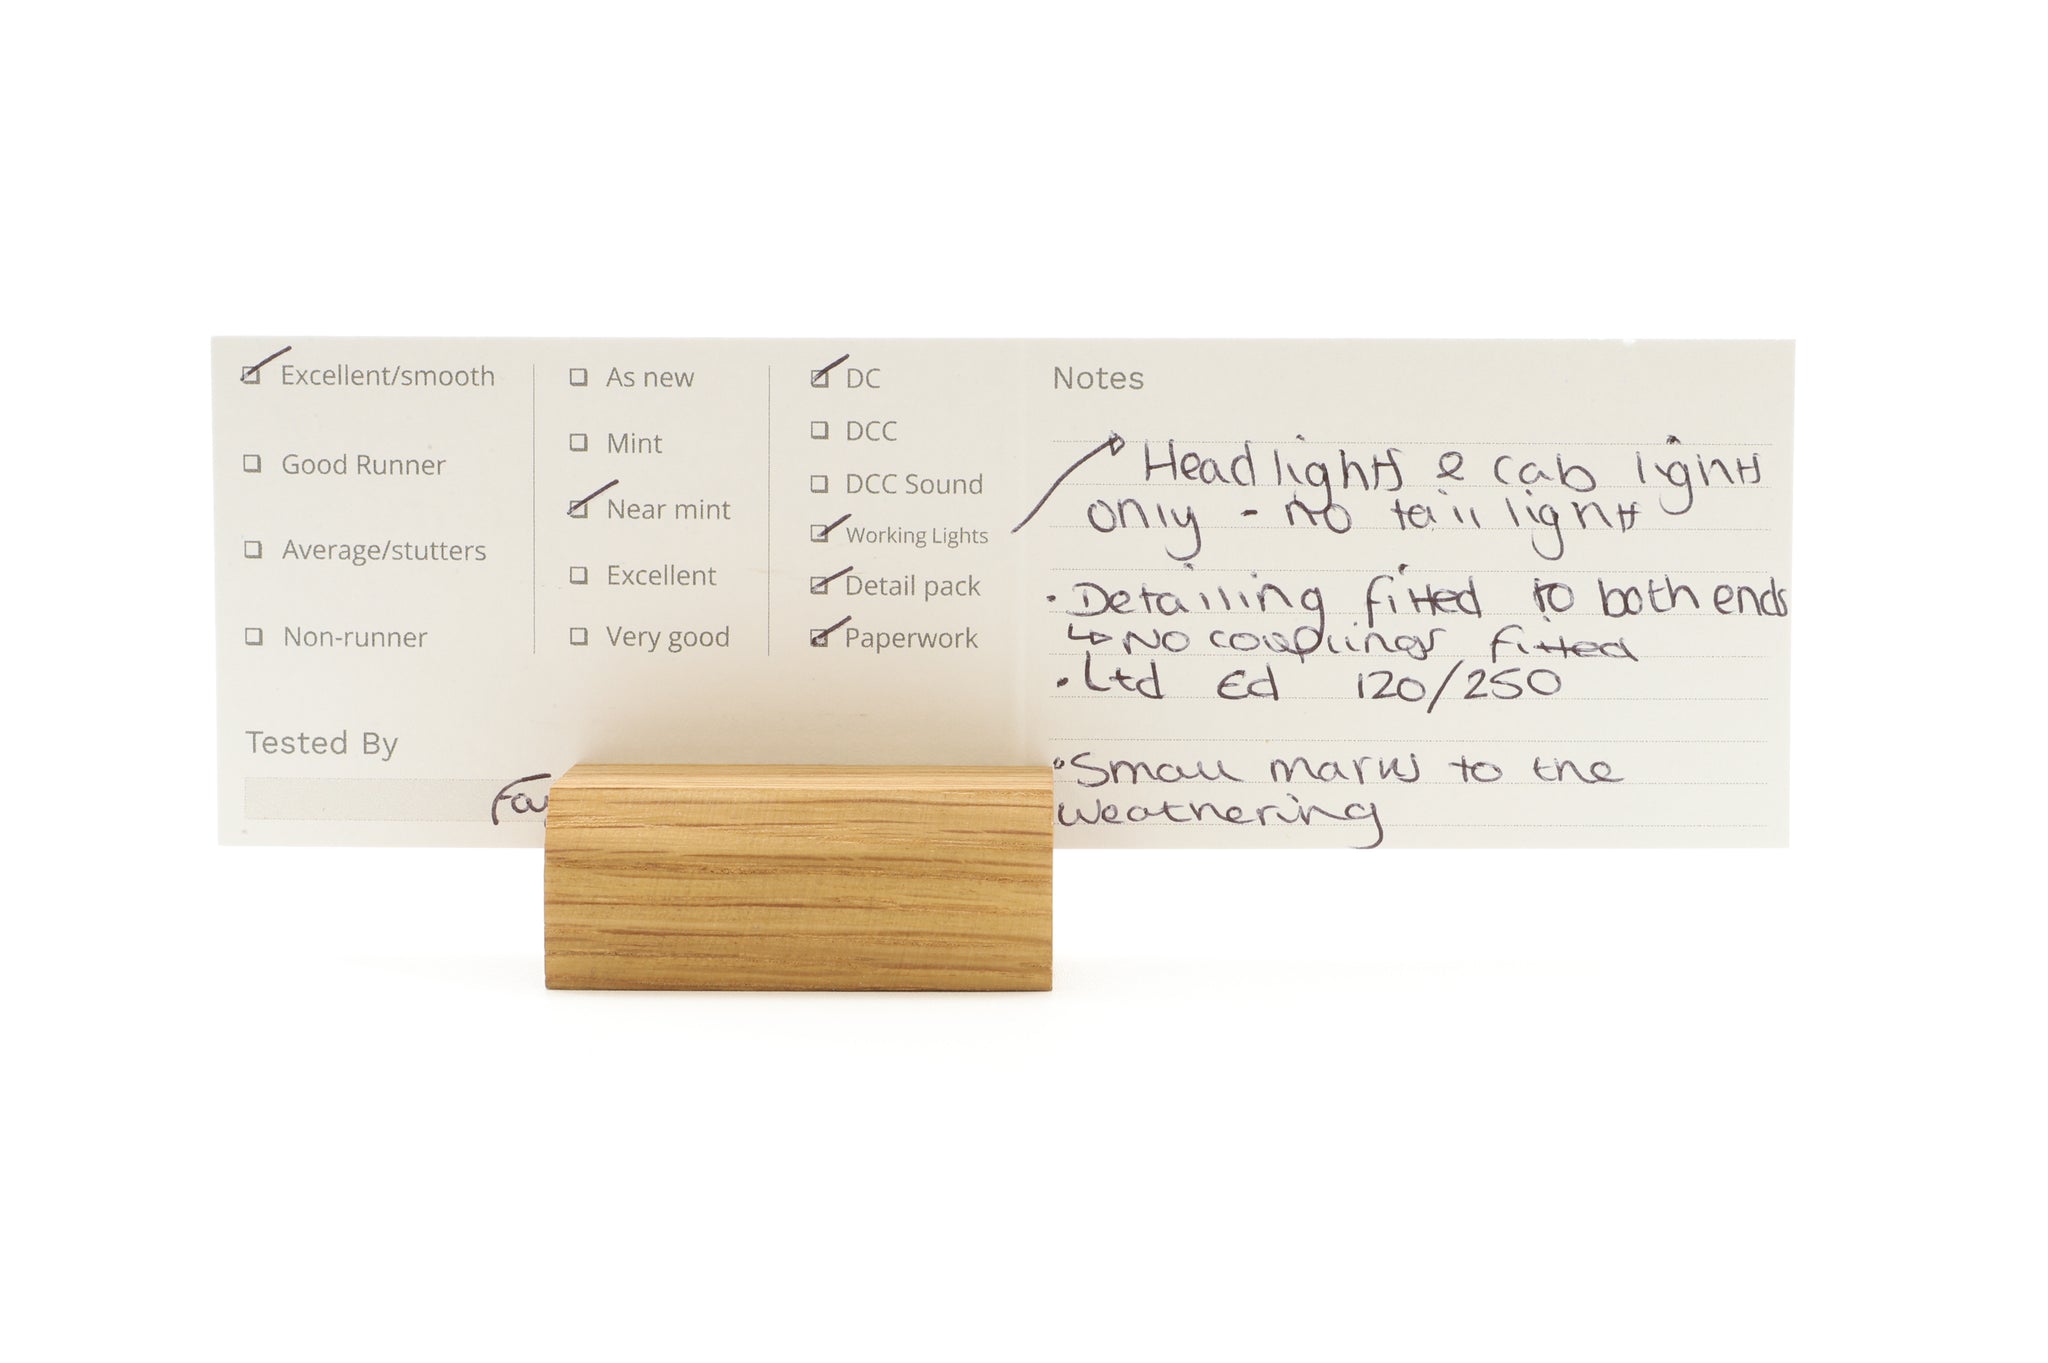 Excellent/smooth
Good Runner
Average/stutters
Non-runner
As new
Mint
Near mint
Excellent
Very good
DC
DCC
DCC Sound
Working Lights
Detail pack
Paperwork
Tested By
Notes
Headlights & cab lights
only - no tail lights
• Detailing fitted to both ends
↳ No couplings fitted
• Ltd Ed 120/250
• Small marks to the
weathering